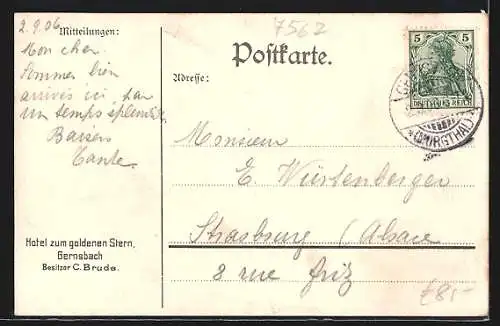 2.9.06
Mitteilungen:
Mon cher
Sommes bien
arrivés ici par
un temps splendide
Baisers
Tante.
Hotel zum goldenen Stern,
Gernsbach
Besitzer C. Brude.
7562
Postkarte.
Adresse:
5 5
DEUTSCHES REICH
(MURGTHAL)
Monsieur
E. Würtenberger
Strasburg (Alsace
8 rue
£81-